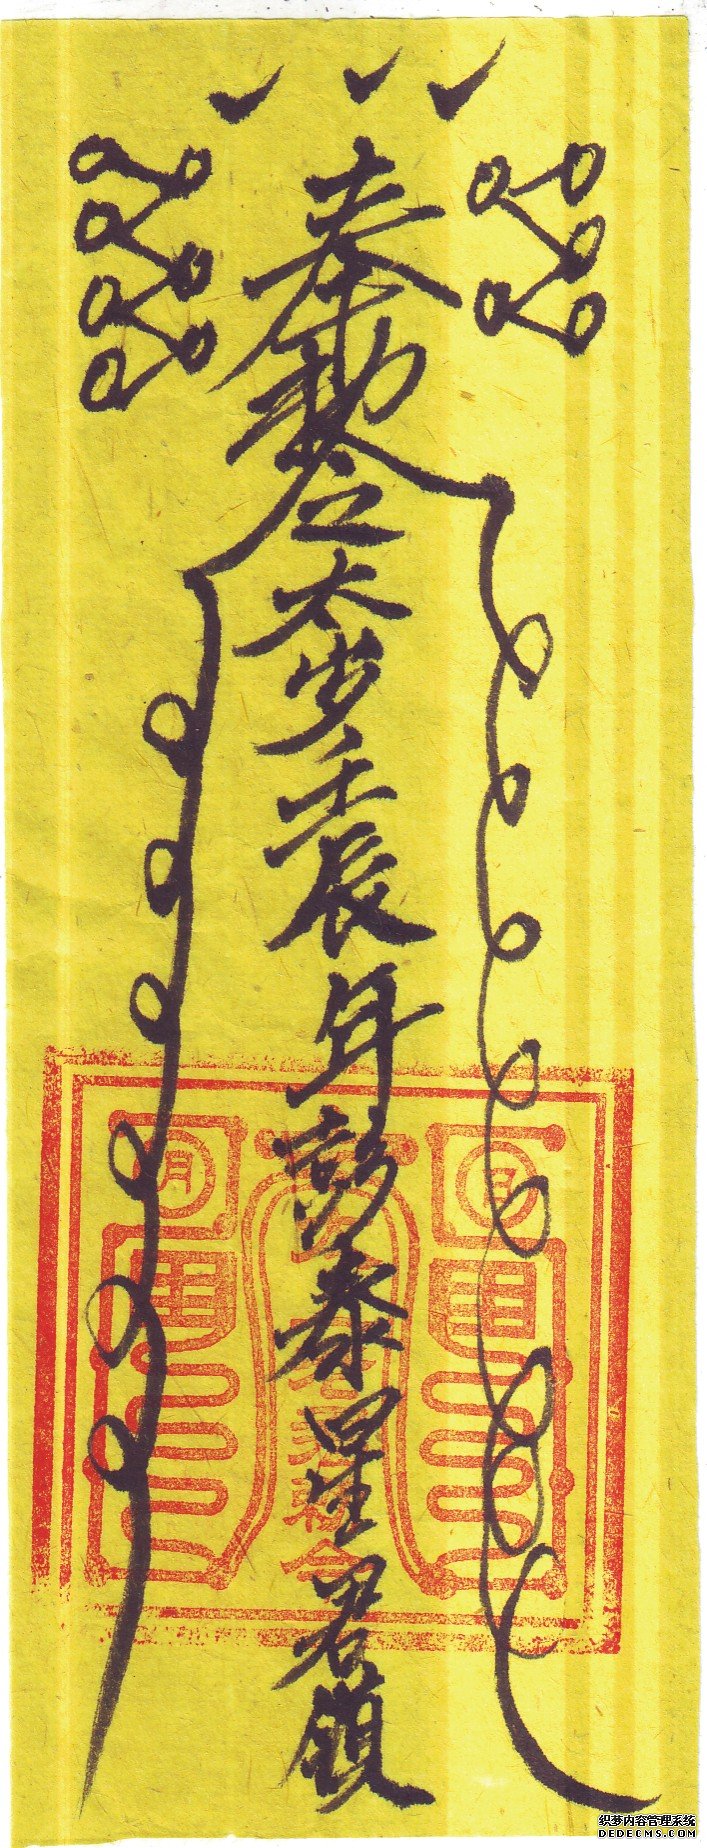 奉勅立太歲壬辰年彭泰星君鎮
日
月
织梦内容管理系统
DEDECMS.COM